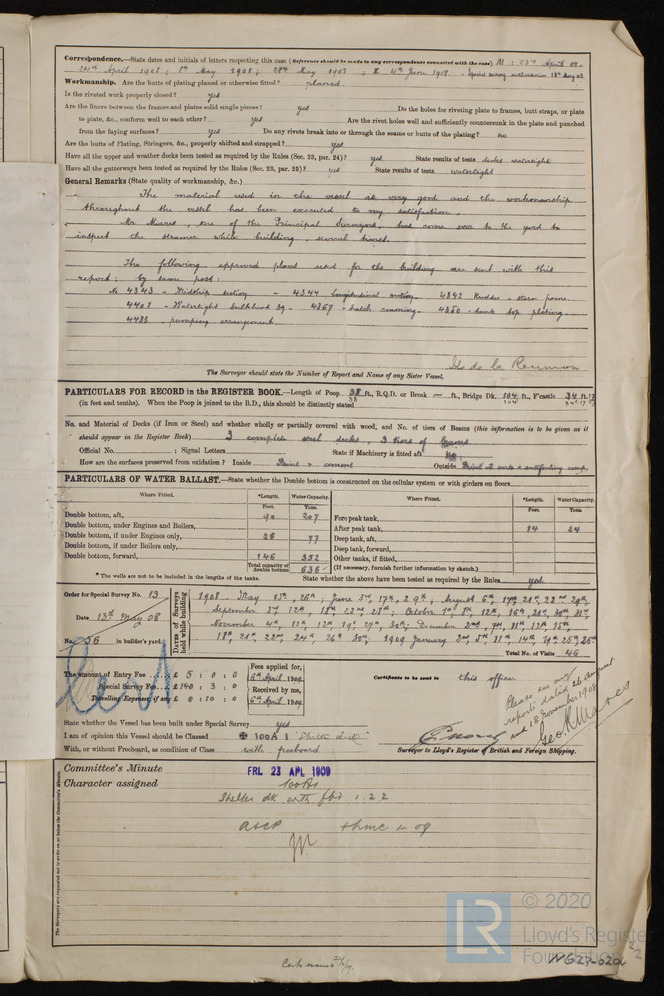 Correspondence.—State dates and initials of letters respecting this case (Reference should be made to any correspondence connected with the case) M: 23rd April 08 -
24th April 1908; 8th May 1908; 28th May 1908; & 4th June 1908. - Special survey authorised 18th May 08
Workmanship. Are the butts of plating planed or otherwise fitted? planed.
Is the riveted work properly closed? yes
Are the liners between the frames and plates solid single pieces? yes Do the holes for riveting plate to frames, butt straps, or plate
to plate, &c., conform well to each other? yes Are the rivet holes well and sufficiently countersunk in the plate and punched
from the faying surfaces? yes Do any rivets break into or through the seams or butts of the plating? no
Are the butts of Plating, Stringers, &c., properly shifted and strapped? yes
Have all the upper and weather decks been tested as required by the Rules (Sec. 23, par. 24)? yes State results of tests decks watertight
Have all the gutterways been tested as required by the Rules (Sec. 23, par. 25)? yes State results of tests watertight
General Remarks (State quality of workmanship, &c.)
The material used in the vessel is very good and the workmanship
throughout the vessel has been executed to my satisfaction.
Mr Mares, one of the Principal Surveyors, has come over to the yard to
inspect the steamer while building, several times.
The following approved plans used for the building are sent with this
report; by same post:
No 4343 - Midship section - 4344 Longitudinal section - 4342 Rudder - stern frame
4408 - Watertight bulkhead &c - 4367 - hatch coaming - 4350 - tank top plating -
4435 - pumping arrangement.
Ile de la Reunion
The Surveyor should state the Number of Report and Name of any Sister Vessel.
PARTICULARS FOR RECORD in the REGISTER BOOK.—Length of Poop 38 ft., R.Q.D. or Break — ft., Bridge Dk. 104 ft., F'castle 34 ft.
(in feet and tenths). When the Poop is joined to the B.D., this should be distinctly stated
No. and Material of Decks (if Iron or Steel) and whether wholly or partially covered with wood, and No. of tiers of Beams (this information is to be given as it
should appear in the Register Book) 3 complete steel decks, 3 tiers of beams
Official No. ; Signal Letters State if Machinery is fitted aft no.
How are the surfaces preserved from oxidation? Inside Paint & cement Outside Paint
PARTICULARS OF WATER BALLAST.—State whether the Double bottom is constructed on the cellular system or with girders on floors
Where Fitted. *Length. Water Capacity. Where Fitted. *Length. Water Capacity.
Feet. Tons. Feet. Tons.
Double bottom, aft, 90 207 Fore peak tank,
Double bottom, under Engines and Boilers, After peak tank, 14 24
Double bottom, if under Engines only, 26 77 Deep tank, aft,
Double bottom, if under Boilers only, Deep tank, forward,
Double bottom, forward, 146 352 Other tanks, if fitted,
Total capacity of double bottom 636 (If necessary, furnish further information by sketch.)
* The wells are not to be included in the lengths of the tanks. State whether the above have been tested as required by the Rules yes
Order for Special Survey No. 13
Date 13th May 08
No. 36 in builder's yard.
DATES of Surveys held while building
1908 - May 15th, 26th; June 3rd, 17th, 29th; August 6th, 17th, 21st, 22nd, 29th;
September 2nd, 12th, 18th, 22nd, 27th; October 1st, 7th, 12th, 16th, 21st, 30th, 31st,
November 4th, 11th, 12th, 19th, 27th, 30th; December 2nd, 7th, 11th, 12th, 15th,
18th, 21st, 22nd, 24th, 26th, 30th; 1909 January 2nd, 5th, 11th, 14th, 19th, 25th, 26th
Total No. of Visits 46
Cert
The amount of Entry Fee £ 5 : 0 : 0
Special Survey Fee £ 140 : 3 : 0
Travelling Expenses, if any £ 0 : 10 : 0
Fees applied for,
6th April 1909
Received by me,
6th April 1909
Certificate to be sent to this office.
Please see my
reports dated 26 August
and 18 November 1908
Geo. R. Mares
State whether the Vessel has been built under Special Survey yes
I am of opinion this Vessel should be Classed ✠ 100A 1 "Shelter deck"
With, or without Freeboard, as condition of Class with freeboard
Surveyor to Lloyd's Register of British and Foreign Shipping.
Committee's Minute FRI. 23 APL 1909
Character assigned 100A1
Shelter dk with fbd : 2 2
A&CP +hmc 4 09
The Surveyors are requested not to write on or below the Committee's Minute.
© 2020
LR
Lloyd's Register
Foundation